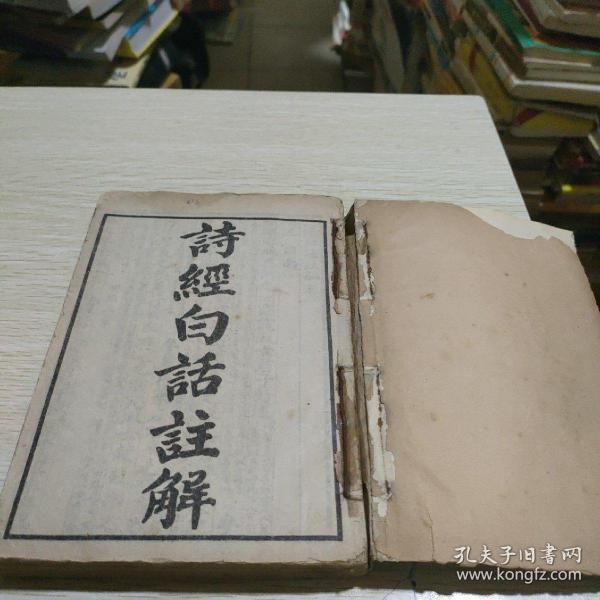 詩經白話註解
孔夫子旧書网
www.kongfz.com